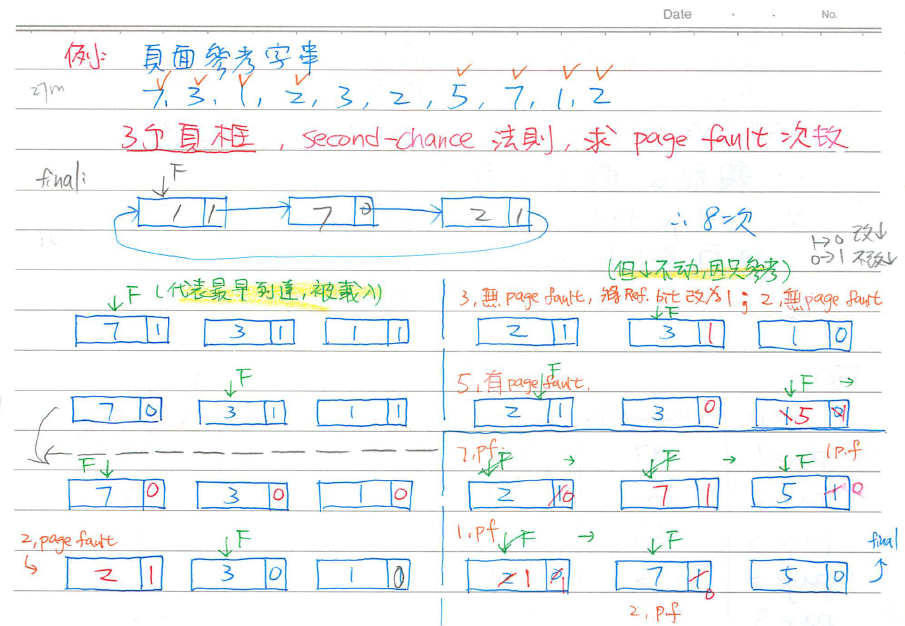 Date . . No.
例: 頁面參考字串
7, 3, 1, 2, 3, 2, 5, 7, 1, 2
3個頁框, second-chance 法則, 求 page fault 次數
final: F
1 1 7 0 2 1 ∴ 8次
1→0 改↓
0→1 不改↓
(但↓不動,因只參考)
F (代表最早到達,被載入)
7 1 3 1 1 1
F
7 0 3 1 1 1
F
7 0 3 0 1 0
2, page fault F
2 1 3 0 1 0
3, 無 page fault, 將 Ref. bit 改為1; 2, 無 page fault
F
2 1 3 1 1 0
5, 有 page fault.
F F →
2 1 3 0 1 5 0 1
7, pf F → F → F 1 p.f
2 1 0 7 1 5 1 0
1, pf F → F final
2 1 0 1 7 1 0 5 0
2, p.f